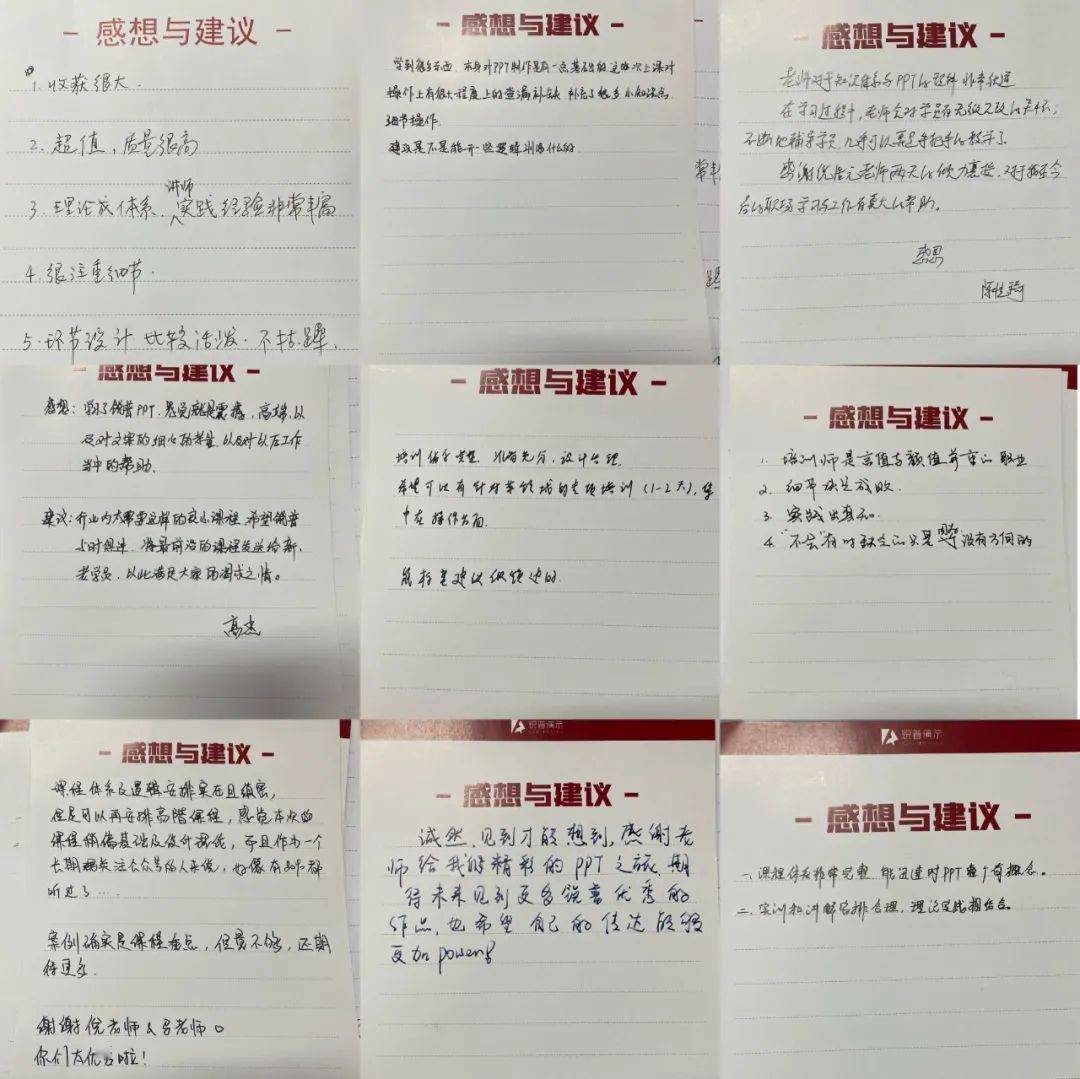 - 感想与建议
1. 收获很大.
2. 超值，质量很高
3. 理论成体系. 讲师实践经验非常丰富
4. 很注重细节.
5. 环节设计比较活泼. 不枯燥.
- 感想与建议 -
学到很多东西. 本身对PPT制作是有一点基础的 这次上课对
操作上有很大程度上的查漏补缺 补充了很多小知识点
细节操作.
建议是不是能开一些逻辑训练什么的
- 感想与建议 -
老师对于知识体系与PPT的 非常
在学习过程中，老师会对学员有
不断地辅导学员，几乎可以算是手把手的教学了.
感谢倪 老师两天的倾力 ，对于我至今
后的职场学习与工作有莫大的帮助.
- 感想与建议 -
感想：学习了锐普PPT. 感觉就是震撼、高端. 以
及对文案的细心 . 以及对以后工作
当中的帮助.
建议：行业内太需要这样的良心课程. 希望锐普
与时俱进. 将最前沿的课程发送给新、
老学员. 以此满足大家的渴求之情。
高杰
- 感想与建议 -
培训 充分、设计合理.
希望可以有针对某领域的专项培训 (1-2天), 集
中在操作方面.
- 感想与建议 -
1. 培训师是言值与颜值并重的职业
2. 细节决定成败.
3. 实践出真知.
4. "不会"有时 只是 没有方向的
- 感想与建议 -
课程体系及逻辑安排实在且缜密，
但是可以再安排高阶课程，感觉本次的
课程稍偏基础及设计 ，而且作为一个
长期 关注公众号的人来说，好像有 都
听过了....
案例确实是课程亮点，但量不够，还期
待更多.
谢谢倪老师&马老师。
你们太优秀啦！
锐普演示
- 感想与建议 -
诚然，见到才能想到，感谢老
师给我们精彩的PPT之旅. 期
待未来见到更多锐普优秀的
作品，也希望自己的传达能够
更加
锐普演示
- 感想与建议 -
一、课程体系非常完整. 能迅速对PPT有个概念。
二、实训和讲解安排合理，理论实践相结合。